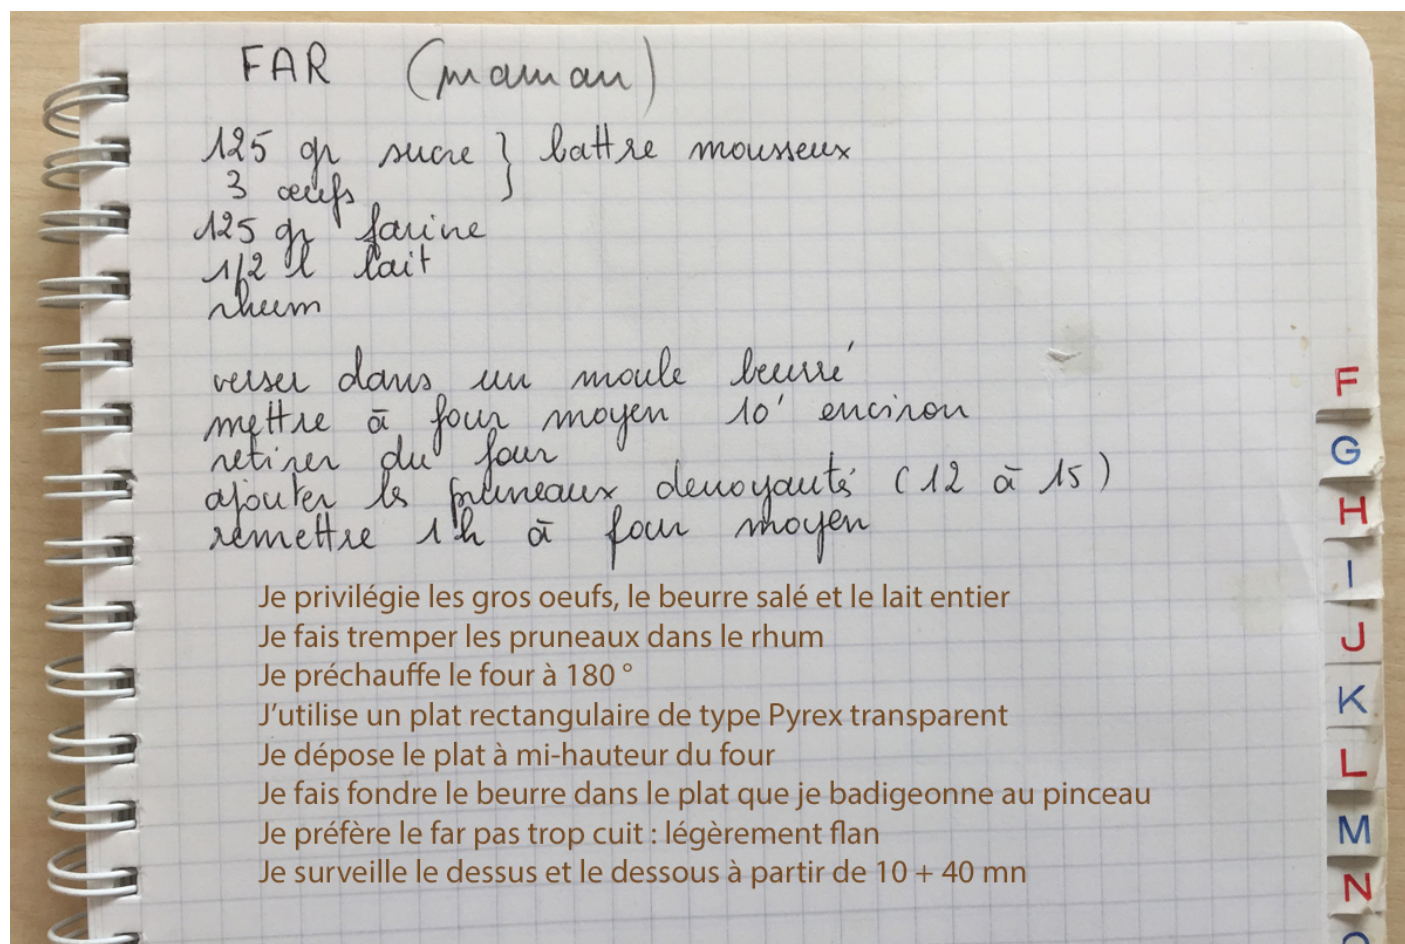 FAR (maman)
125 gr sucre } battre mousseux
3 œufs
125 gr farine
1/2 l lait
rhum
verser dans un moule beurré
mettre à four moyen 10' environ
retirer du four
ajouter les pruneaux denoyautés (12 à 15)
remettre 1h à four moyen
Je privilégie les gros oeufs, le beurre salé et le lait entier
Je fais tremper les pruneaux dans le rhum
Je préchauffe le four à 180 °
J'utilise un plat rectangulaire de type Pyrex transparent
Je dépose le plat à mi-hauteur du four
Je fais fondre le beurre dans le plat que je badigeonne au pinceau
Je préfère le far pas trop cuit : légèrement flan
Je surveille le dessus et le dessous à partir de 10 + 40 mn
F
G
H
I
J
K
L
M
N